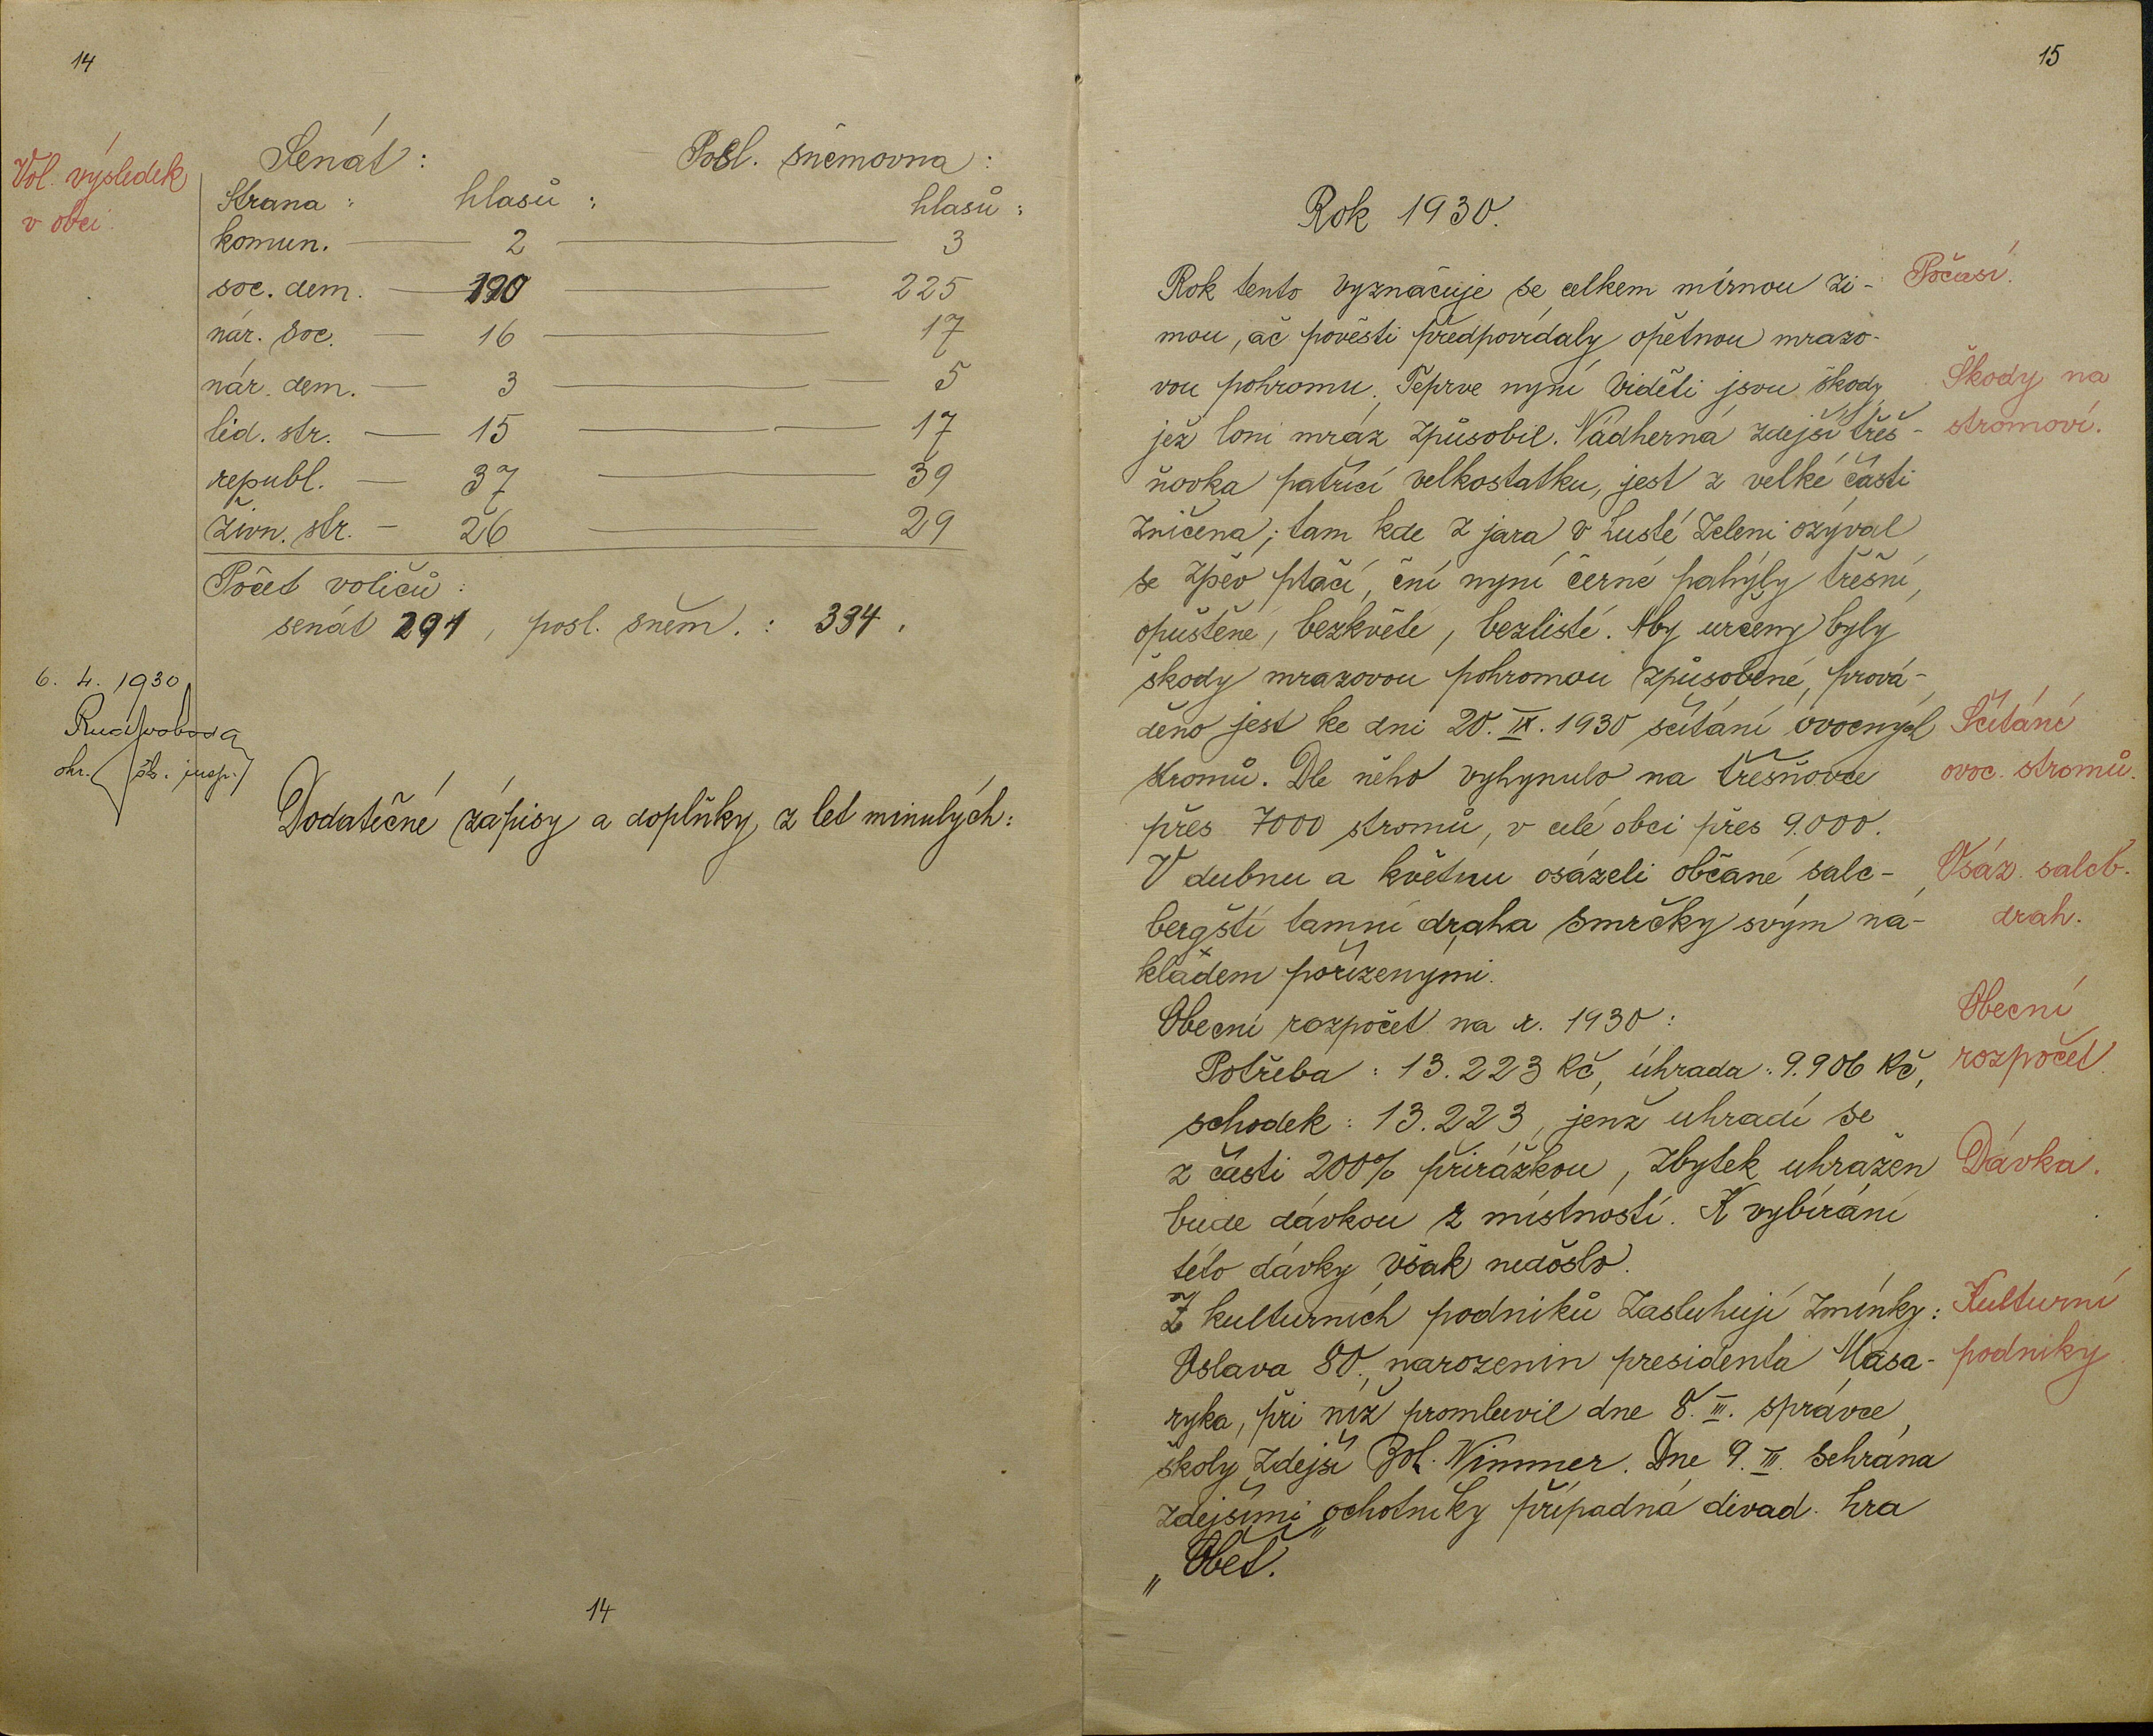 14
Vol. výsledek
v obci.
Senát: Posl. sněmovna:
Strana: hlasů: hlasů:
komun. — 2 — 3
soc. dem. — 190 — 225
nár. soc. — 16 — 17
nár. dem. — 3 — 5
lid. str. — 15 — 17
republ. — 37 — 39
živn. str. — 26 — 29
Počet voličů:
senát 291, posl. sněm.: 334.
6. 4. 1930
Rud Svoboda
okr. šk. insp.
Dodatečné zápisy a doplňky z let minulých:
14
15
Rok 1930.
Rok tento vyznačuje se celkem mírnou zi-
mou, ač pověsti předpovídaly opětnou mrazo-
vou pohromu. Teprve nyní viděti jsou škody,
jež loni mráz způsobil. Nádherná zdejší třeš-
ňovka patřící velkostatku, jest z velké části
zničena; tam kde z jara v husté zeleni ozýval
se zpěv ptačí, ční nyní černé pahýly třešní,
opuštěné, bezkvěté, bezlisté. Aby určeny byly
škody mrazovou pohromou způsobené, prová-
děno jest ke dni 20. IX. 1930 sčítání ovocných
stromů. Dle něho vyhynulo na třešňovce
přes 7000 stromů, v celé obci přes 9.000.
V dubnu a květnu osázeli občané salc-
bergští tamní draha smrčky svým ná-
kladem pořízenými.
Obecní rozpočet na r. 1930:
Potřeba: 13.223 Kč, úhrada: 9.906 Kč,
schodek: 13.223, jenž uhradí se
z části 200% přirážkou, zbytek uhražen
bude dávkou z místností. K vybírání
této dávky však nedošlo.
Z kulturních podniků zasluhují zmínky:
Oslava 80. narozenin presidenta Masa-
ryka, při níž promluvil dne 8. III. správce
školy zdejší Bol. Nimmer. Dne 9. III. sehrána
zdejšími ochotníky případná divad. hra
„Oběť."
Počasí.
Škody na
stromoví.
Sčítání
ovoc. stromů.
Osáz. salcb.
drah.
Obecní
rozpočet.
Dávka.
Kulturní
podniky